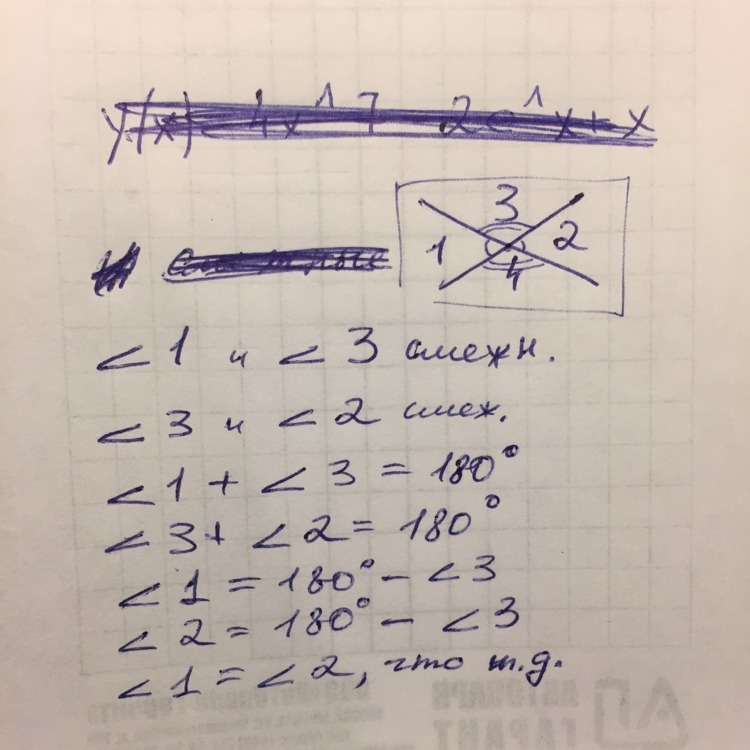 y(x) = 4x^7 - 2e^x + x
3
1 2
4
∠1 и ∠3 смежн.
∠3 и ∠2 смеж.
∠1 + ∠3 = 180°
∠3 + ∠2 = 180°
∠1 = 180° - ∠3
∠2 = 180° - ∠3
∠1 = ∠2, что т.д.
АВТОПАРК
ГАРАНТ